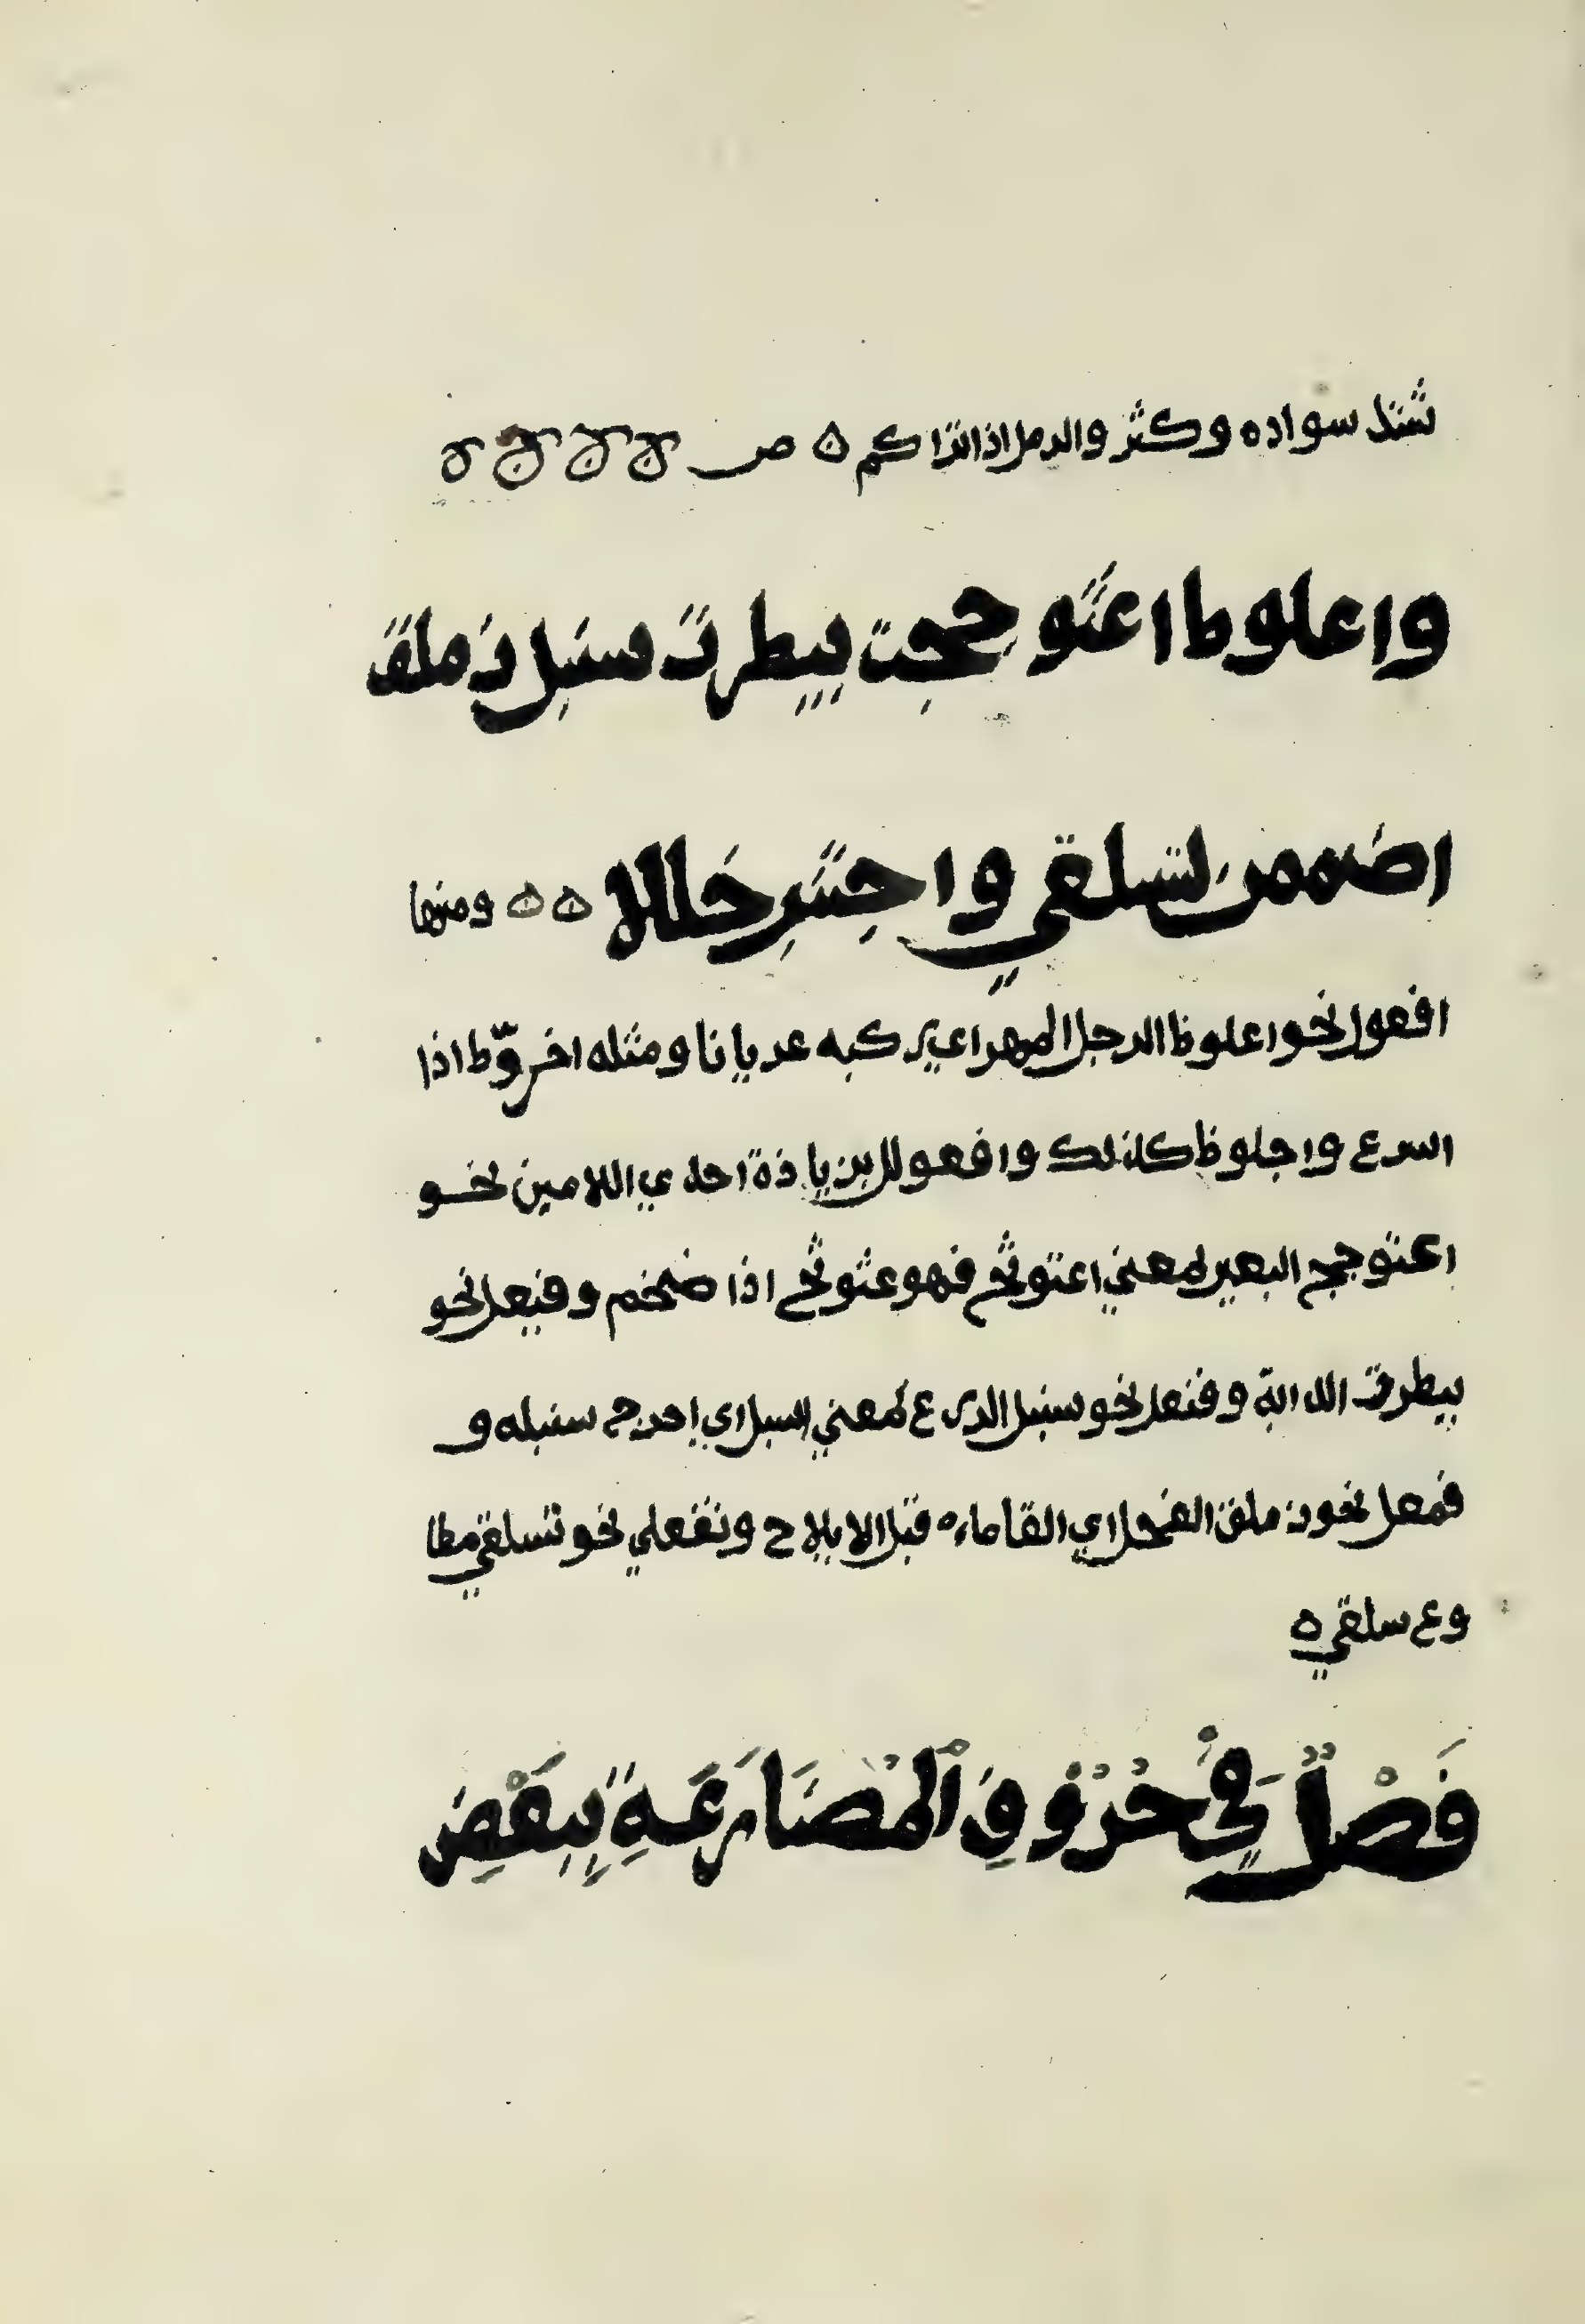 شتد سواده وكثر والرمل اذا تراكم ه ص
واعلوط اعثوججت بيطرت سنبل زملق
اضممن لتسلقى واجتنب خللا ه ه ومنها
افعول نحو اعلوط الرجل المهر اي ركبه عريانا ومثله اخروّط اذا
اسرع واجلوظ كذلك وافعولل بزيادة احدي اللامين نحو
اعثوجج البعير لمعني اعثوثج فهو عثوثج اذا ضخم وفيعل نحو
بيطرت الدابة وفنعل نحو سنبل الزرع لمعني اسبل اي اخرج سنبله و
فمعل نحو زملق الفحل اي القا ماءه قبل الايلاج وتفعلي نحو تسلقي مطا
وع سلقي ه
فَصْلٌ فِيْ حُرُوْفِ الْمُضَارَعَةِ بِبَعْضِ